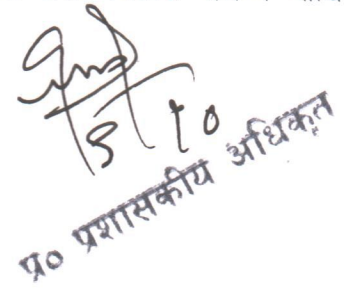 5 10
प्र० प्रशासकीय अधिकृत